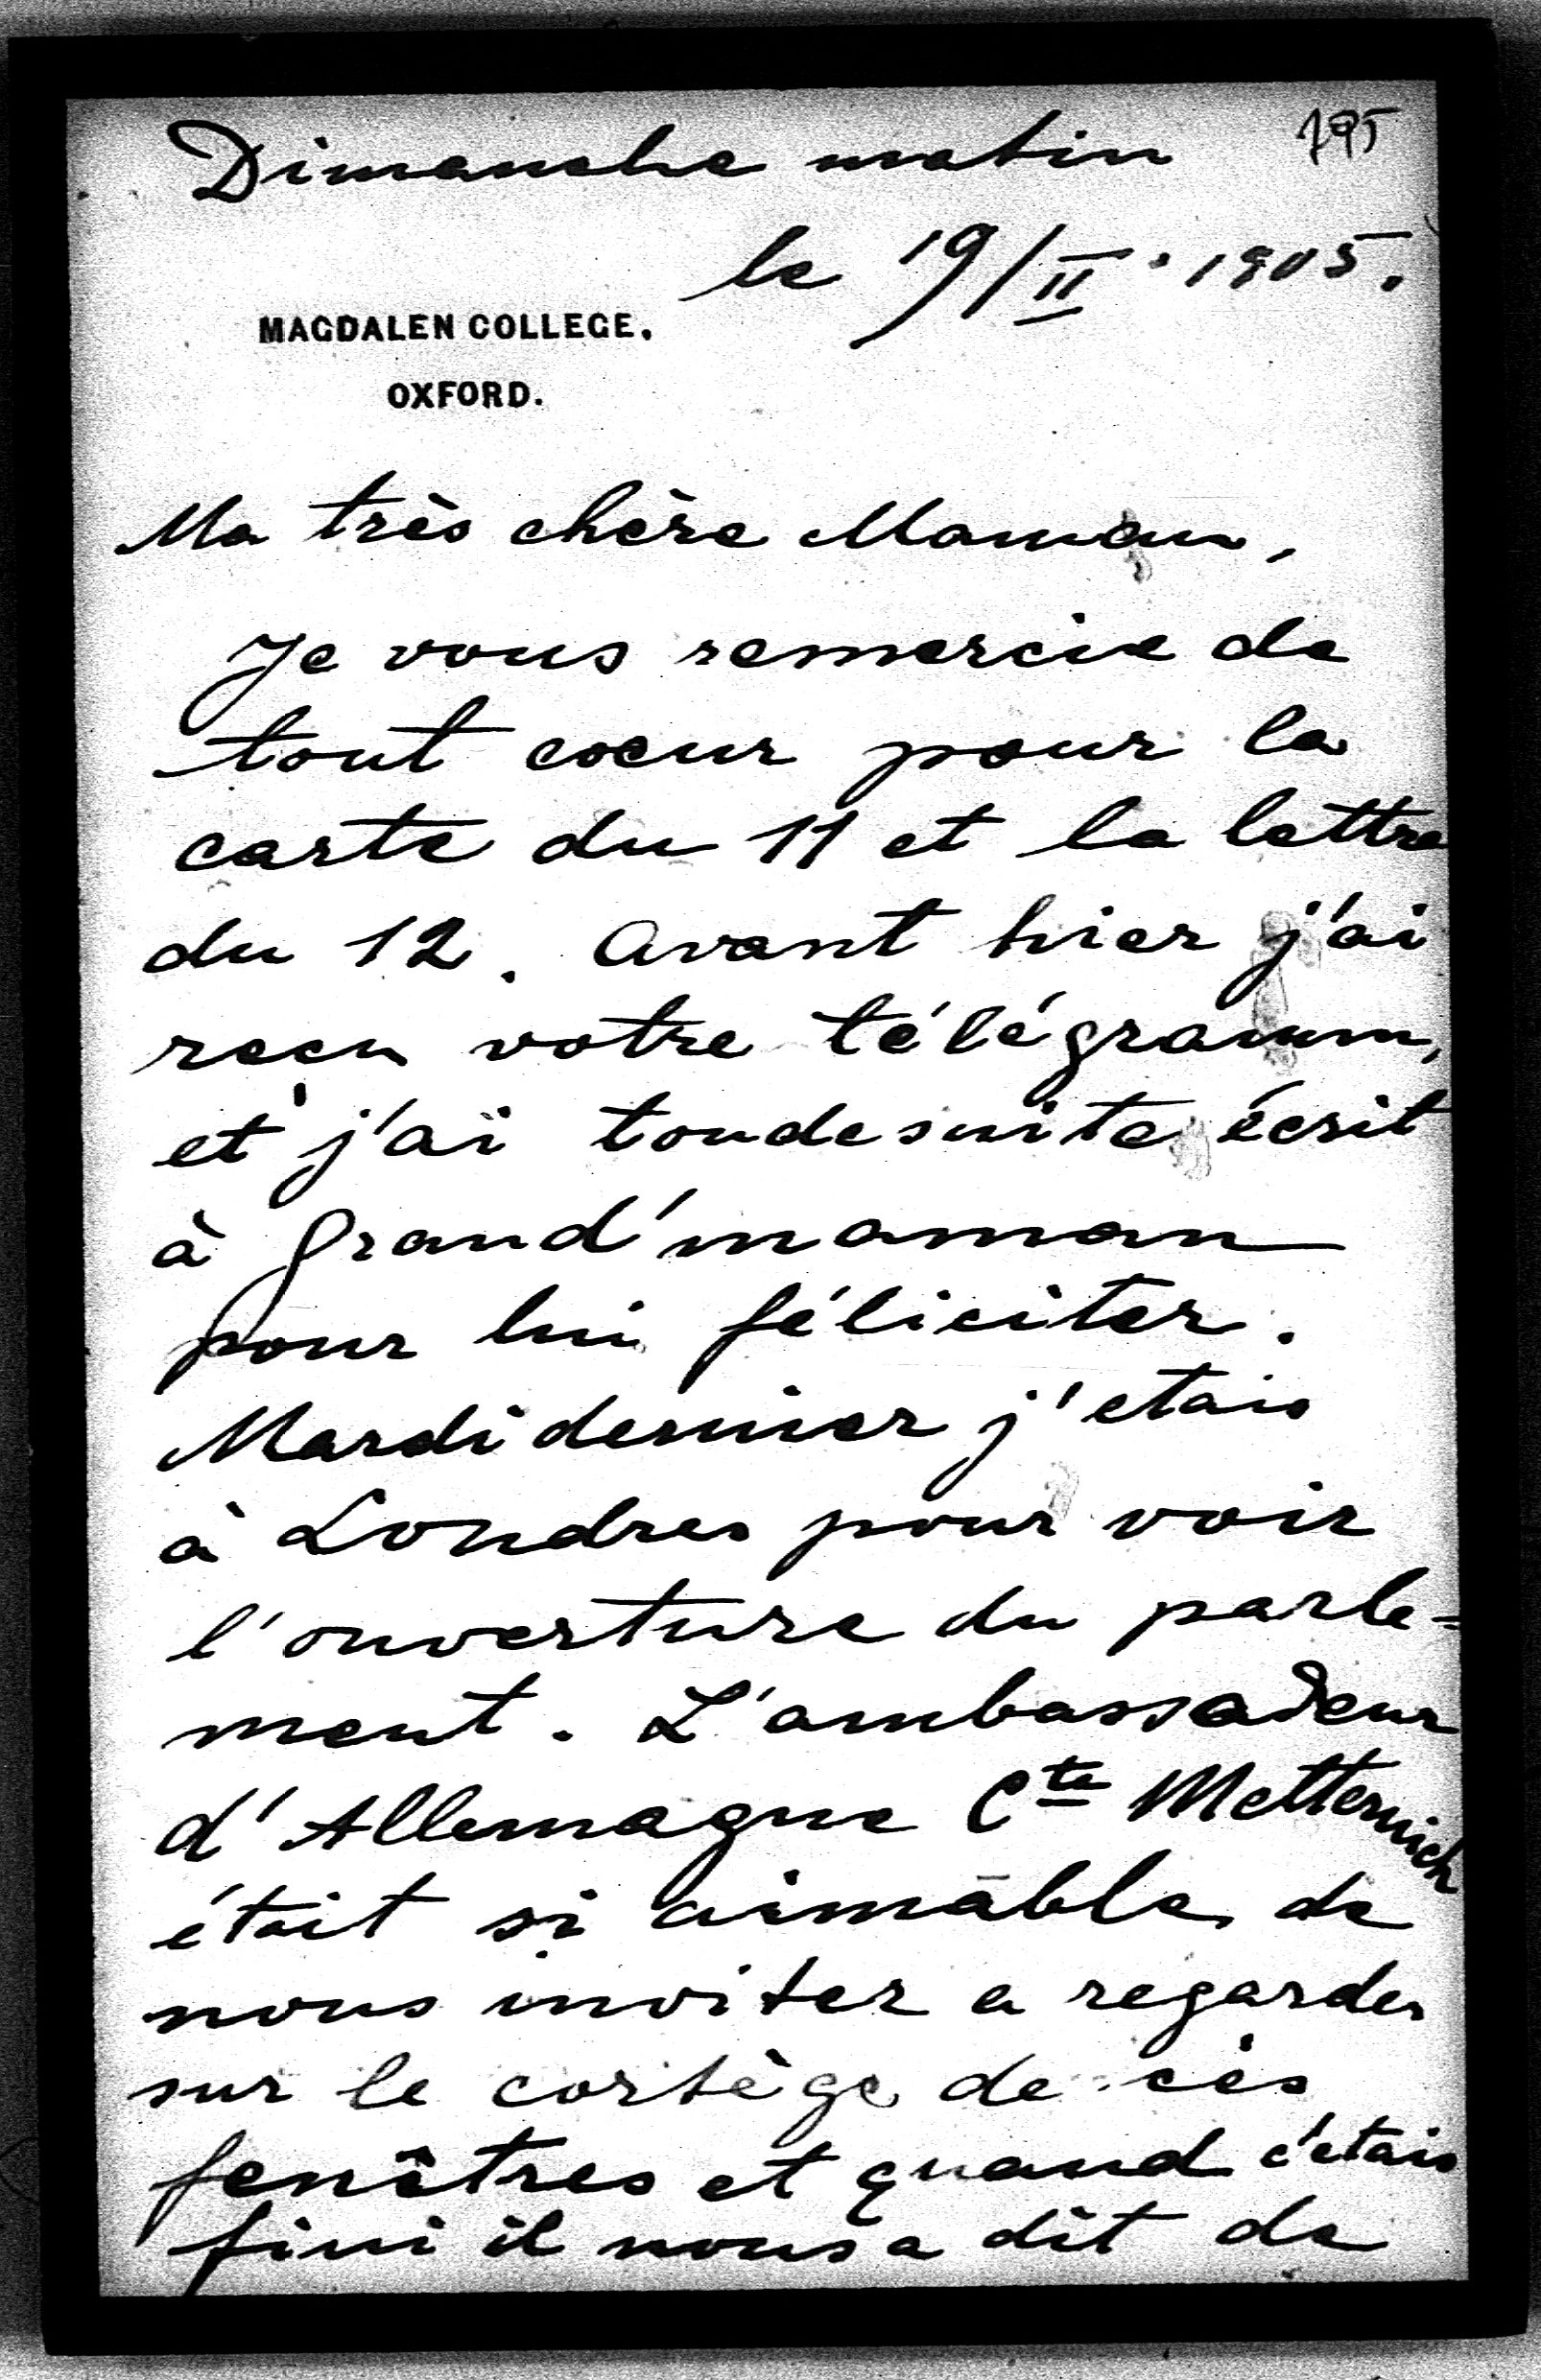 Dimanche matin 195
le 19/II. 1905.
MAGDALEN COLLEGE,
OXFORD.
Ma très chère Maman,
Je vous remercie de
tout coeur pour la
carte du 11 et la lettre
du 12. Avant hier j'ai
recu votre télégramm,
et j'ai toudesuite écrit
à Grand'maman
pour lui féliciter.
Mardi dernier j'etais
à Londres pour voir
l'ouverture du parle=
ment. L'ambassadeur
d'Allemagne Cte Metternich
était si aimable de
nous inviter a regarder
sur le cortège de cès
fenêtres et quand c'etais
fini il nous a dit de